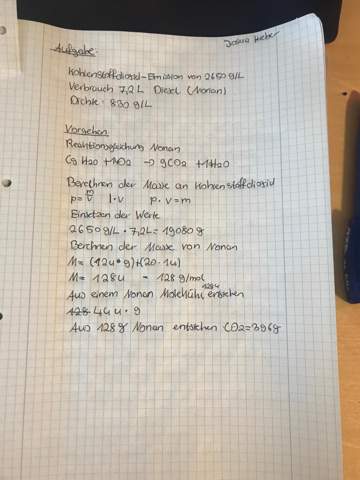 Josua Hieber
Aufgabe:
Kohlenstoffdioxid-Emission von 2650 g/L
Verbrauch 7,2 L Diesel (Nonan)
Dichte: 830 g/L
Vorgehen
Reaktionsgleichung Nonan
C9 H20 + 14O2 → 9CO2 + 10H2O
Berechnen der Masse an Kohlenstoffdioxid
p= m/V |·V p·V=m
Einsetzen der Werte
2650 g/L · 7,2L = 19080 g
Berechnen der Masse von Nonan
M= (12u·9)+(20·1u)
M= 128u - 128 g/mol
Aus einem Nonan Molekühl 128u entstehen
44u · 9
Aus 128g Nonan entstehen CO2=396g